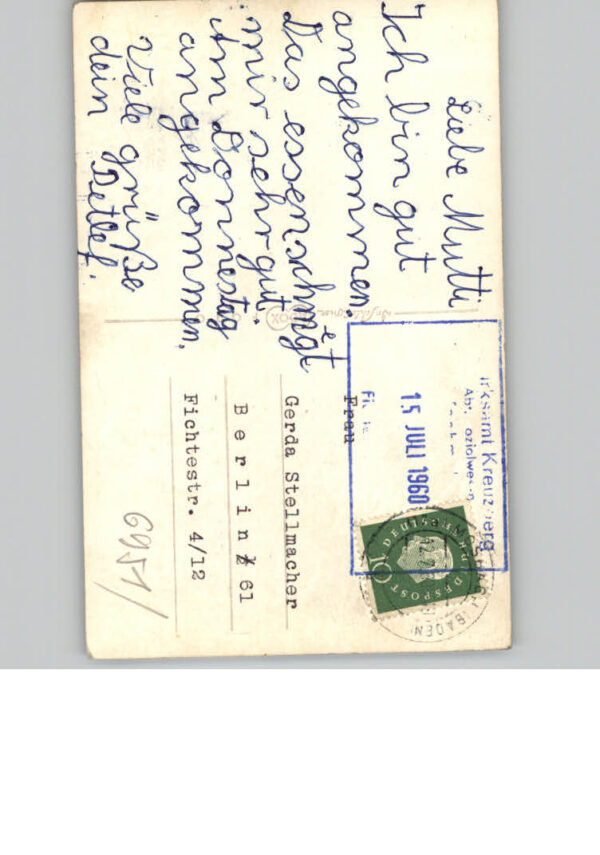 Liebe Mutti
Ich bin gut
angekommen.
Das essen schmegt
mir sehr gut.
Am Donnestag
angekommen,
Viele grüße
dein Detlef.
Kreuzberg
15. JULI 1960
Frau
Gerda Stellmacher
Berlin 61
Fichtestr. 4/12
DEUTSCHE BUNDESPOST
10
(BADEN)
6951/